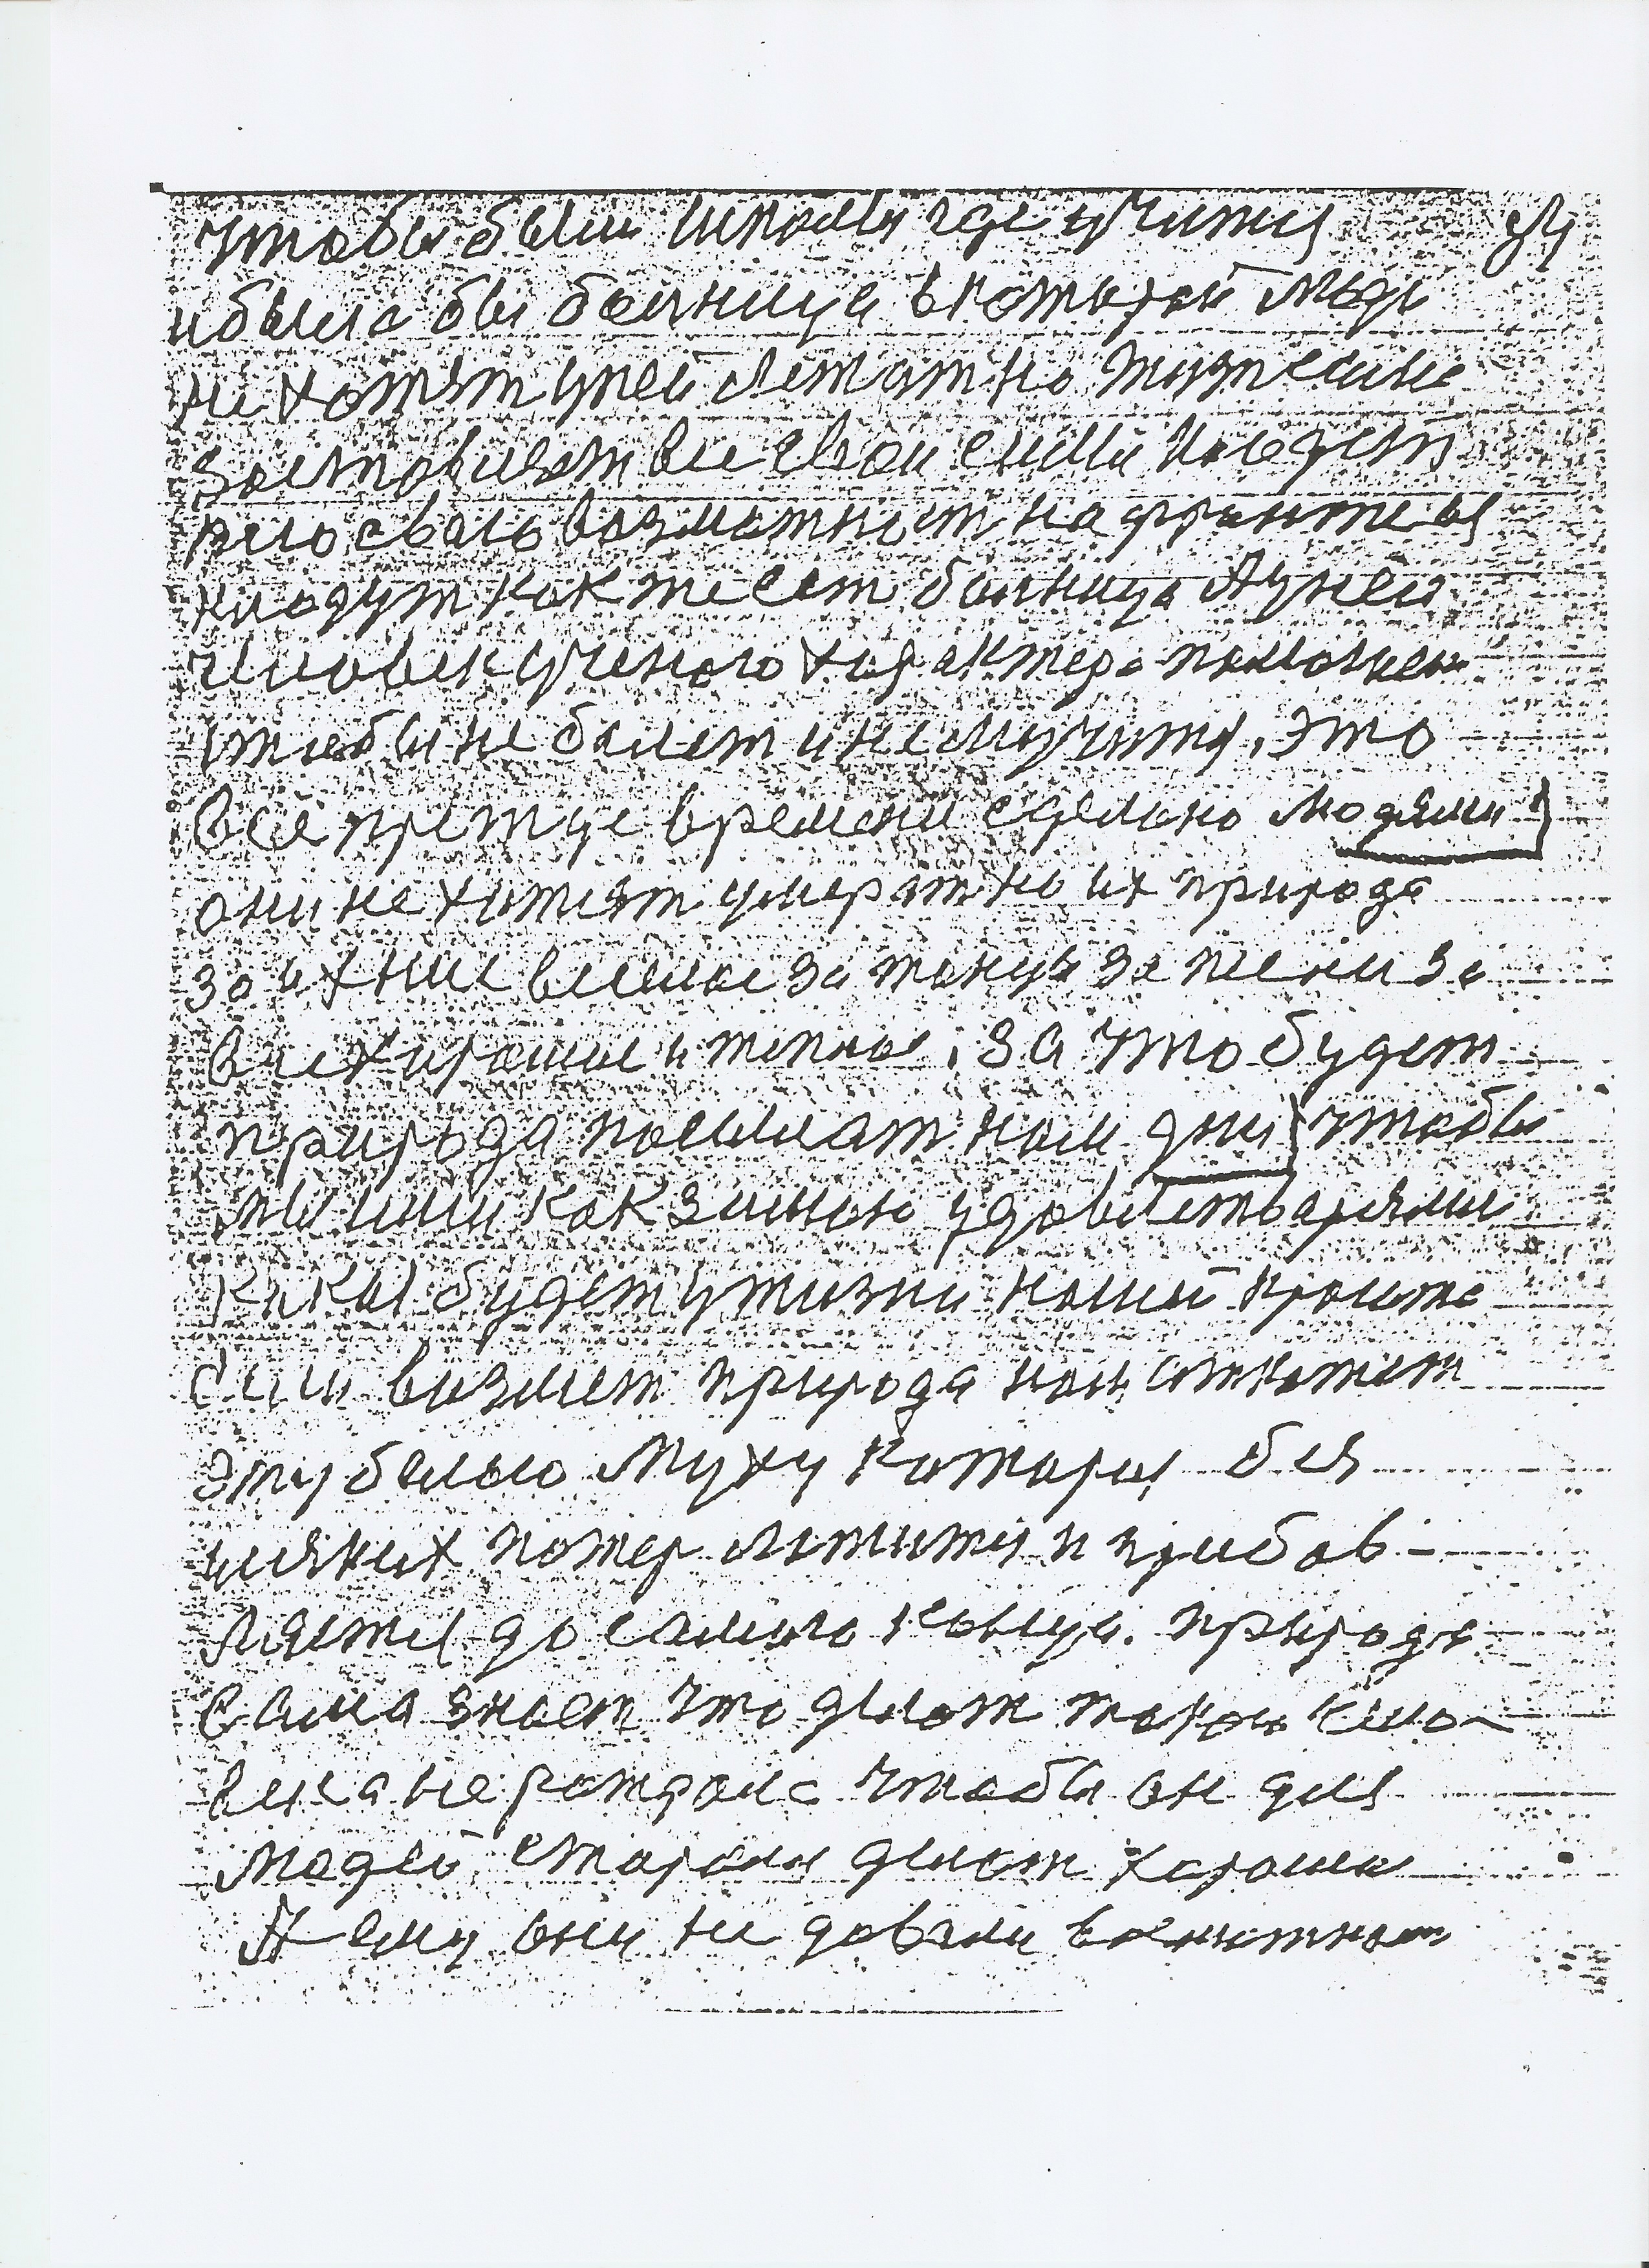 чтобы были школы где учится
и была бы болница в которой люди
не хотят у ней лежат но жизн самe
заставляет все свои силы кладут
всю свою возможност на фронте вы
кладут как же ест болница А у ней
человек ученого характера положен
чтобы не болет и не мучится, это
все прежде времени сделано людями
они не хотят умерат но их природа
за их не веселое за танцы за песни за
все хорошие и теплое, за что будет
природа посылат нам дни чтобы
мы ими как зимою удовлетворялис
какая будет у жизни нашей кроме
сили возмет природа нам откажет
эту белою муху которая без
всяких потер ложится и прибав-
ляется до самого конца. природа
сама знает что делат такого чело-
века не рождала чтобы он для
людей старался делат хорошее
А ему они не давали возможност